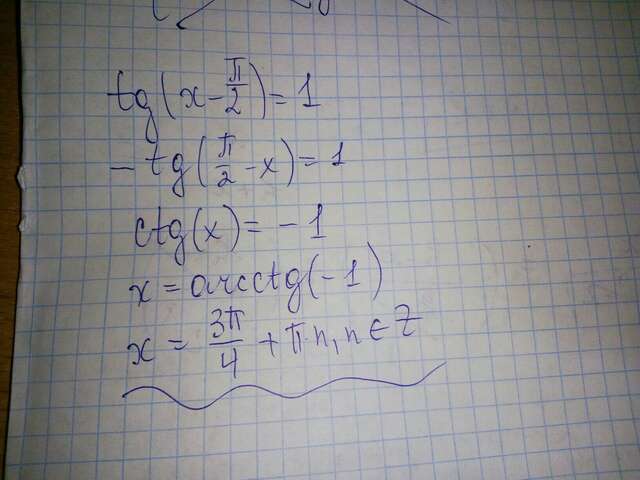 tg(x - π/2) = 1
- tg(π/2 - x) = 1
ctg(x) = - 1
x = arcctg(-1)
x = 3π/4 + π·n, n ∈ Z